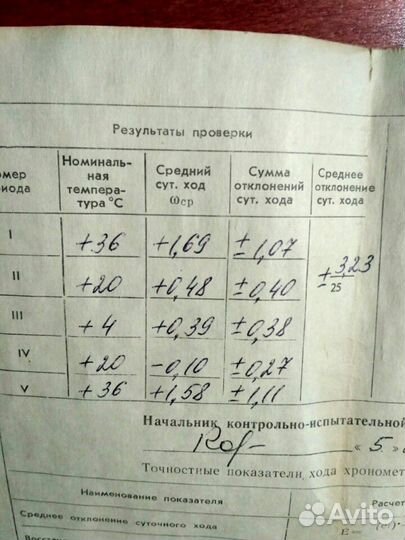 Результаты проверки
Номинальная температура °C
Средний сут. ход ωср
Сумма отклонений сут. хода
Среднее отклонение сут. хода
I +36 +1,69 ±1,07
II +20 +0,48 ±0,40
± 3,23
25
III +4 +0,39 ±0,38
IV +20 -0,10 ±0,27
V +36 +1,58 ±1,11
Начальник контрольно-испытательной
« 5 »
Точностные показатели хода хрономет
Наименование показателя
Расчет
Среднее отклонение суточного хода
E=
Avito